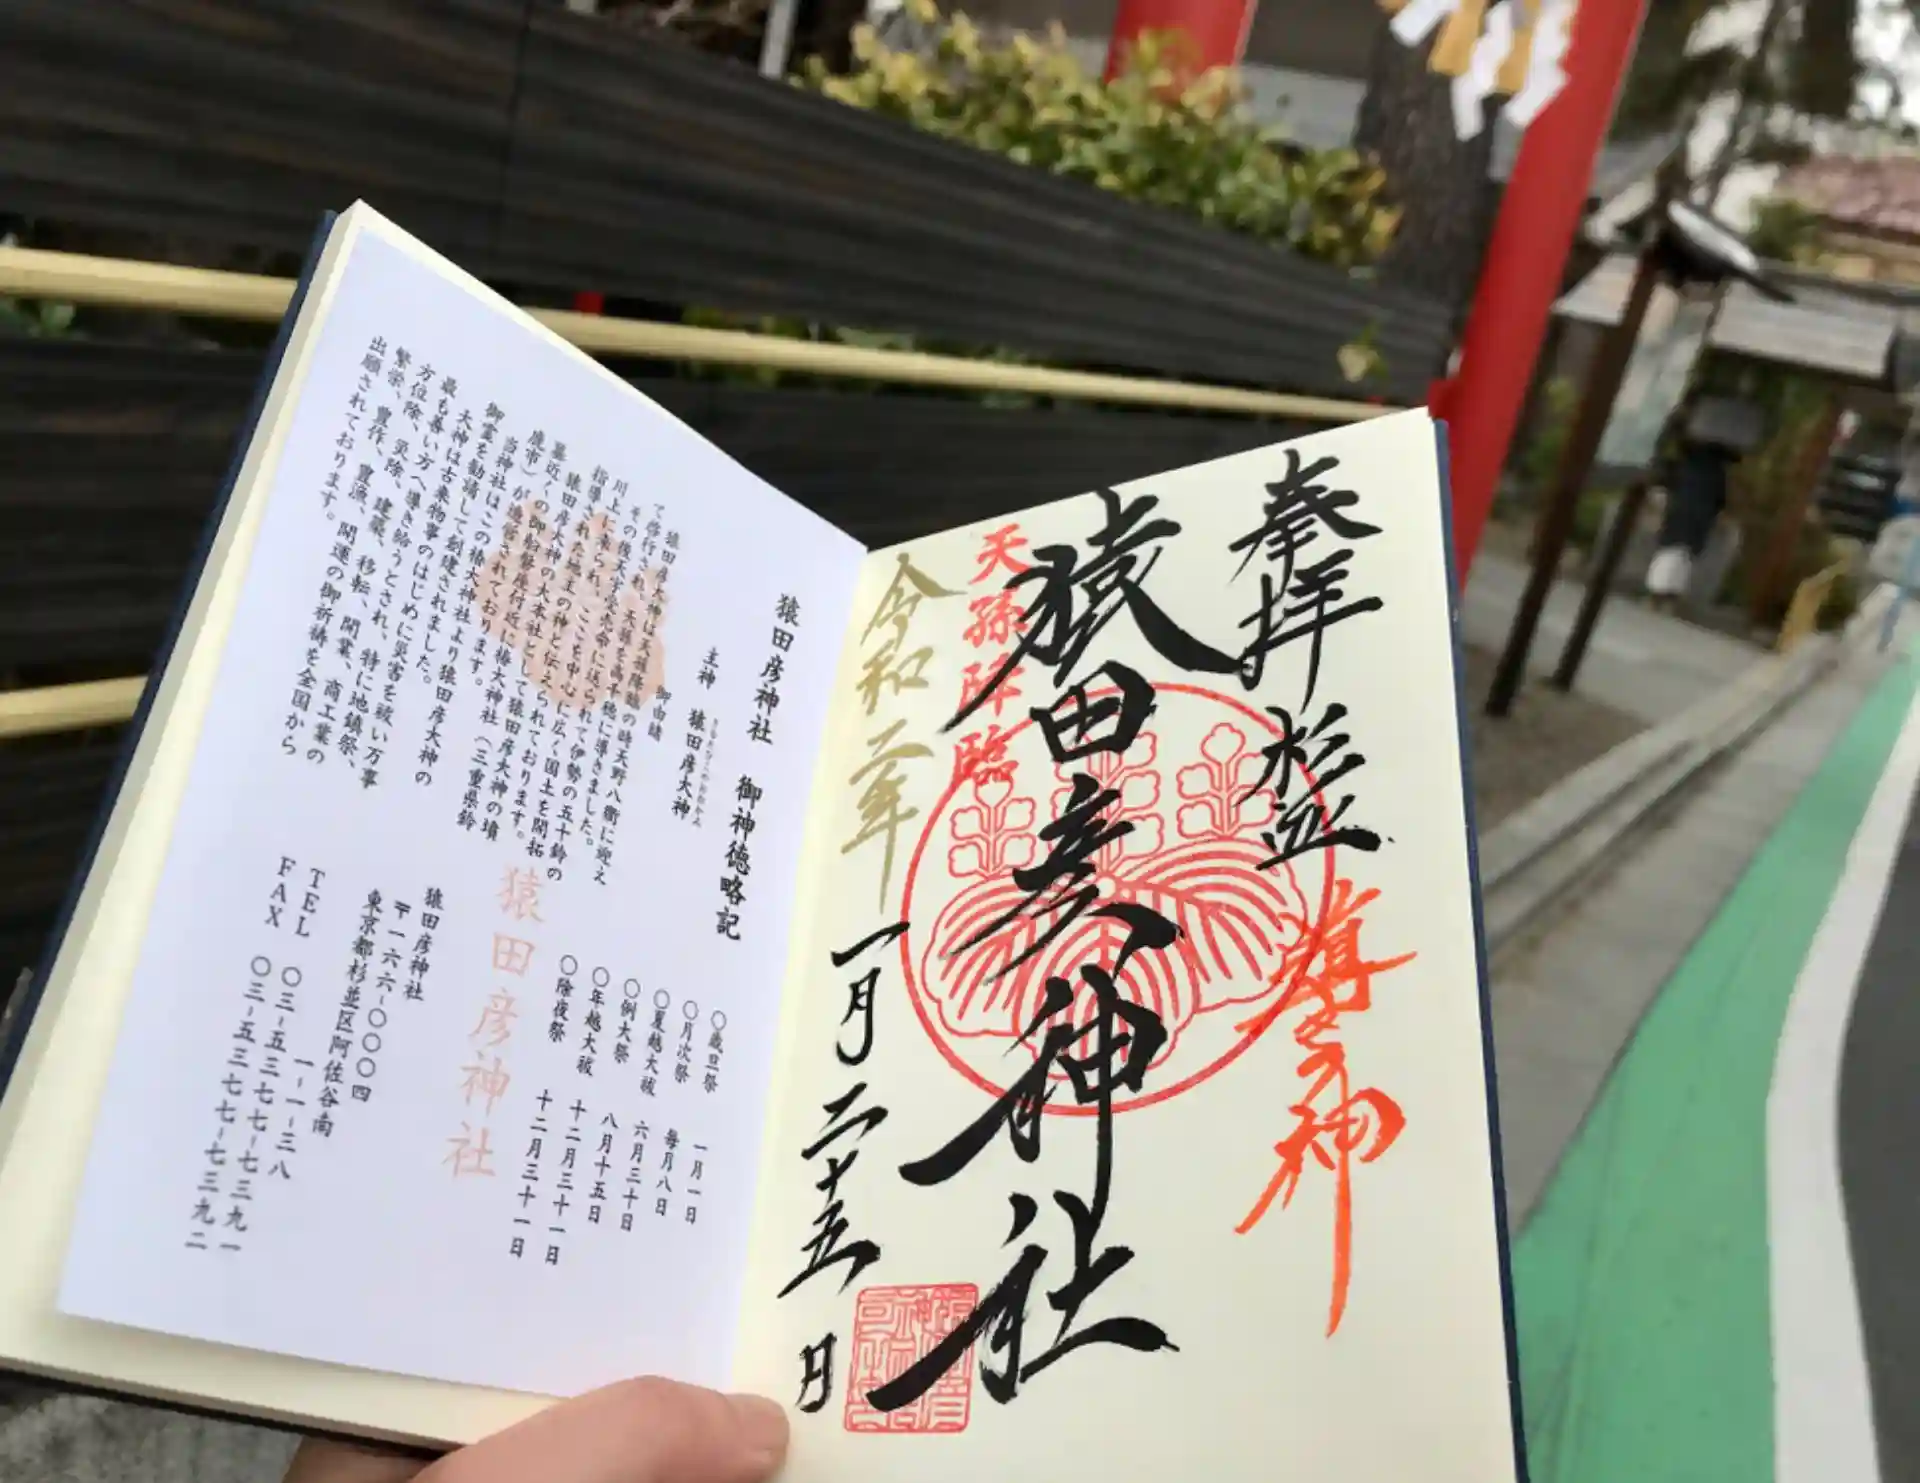 奉拝 杉並
導きの神
猿田彦神社
天孫降臨
令和二年
一月二十五日
猿田彦神社 御神徳略記
主神 猿田彦大神
さるたひこのおおかみ
御由緒
猿田彦大神は天孫降臨の時天野八衢に迎え
て啓行され、天孫を高千穂に導きました。
その後天宇受売命に送られて伊勢の五十鈴の
川上に来られ、ここを中心に広く国土を開拓
指導された地主の神と伝えられております。
猿田彦大神の大本社として猿田彦大神の墳
墓近くの御船磐座付近に椿大神社(三重県鈴
鹿市)が造営されております。
当神社はこの椿大神社より猿田彦大神の
御霊を勧請して創建されました。
大神は古来物事のはじめに災害を祓い万事
最も善い方へ導き給うとされ、特に地鎮祭、
方位除、災除、建築、移転、開業、商工業の
繁栄、豊作、豊漁、開運の御祈祷を全国から
出願されております。
〇歳旦祭 一月一日
〇月次祭 毎月八日
〇夏越大祓 六月三十日
〇例大祭 八月十五日
〇年越大祓 十二月三十一日
〇除夜祭 十二月三十一日
猿田彦神社
猿田彦神社
〒一六六-〇〇〇四
東京都杉並区阿佐谷南
一-一-三八
TEL 〇三-五三七七-七三九一
FAX 〇三-五三七七-七三九二